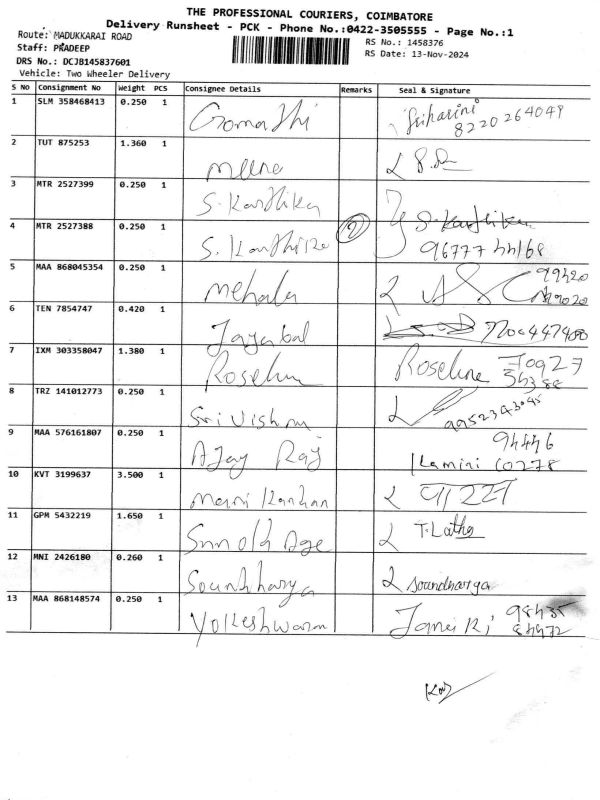 THE PROFESSIONAL COURIERS, COIMBATORE
Delivery Runsheet - PCK - Phone No.:0422-3505555 - Page No.:1
Route: MADUKKARAI ROAD
RS No.: 1458376
Staff: PRADEEP
RS Date: 13-Nov-2024
DRS No.: DCJB145837601
Vehicle: Two Wheeler Delivery
S No Consignment No Weight PCS Consignee Details Remarks Seal & Signature
1 SLM 358468413 0.250 1 Gomathi Sriharini
8220264049
2 TUT 875253 1.360 1 meena
3 MTR 2527399 0.250 1 S. Karthika
4 MTR 2527388 0.250 1 S. Karthika 2 S. Karthika
96777 44168
5 MAA 868045354 0.250 1 mehala 99420
6 TEN 7854747 0.420 1 Jayabal
7 IXM 303358047 1.380 1 Roselin Roseline
8 TRZ 141012773 0.250 1 Sri Vishnu
9 MAA 576161807 0.250 1 AJay Raj Kamini 94446
10278
10 KVT 3199637 3.500 1 mani kandan
11 GPM 5432219 1.650 1 T. Latha
12 MNI 2426180 0.260 1 Soundharya Soundharya
13 MAA 868148574 0.250 1 Yokeshwaran 98435
84972